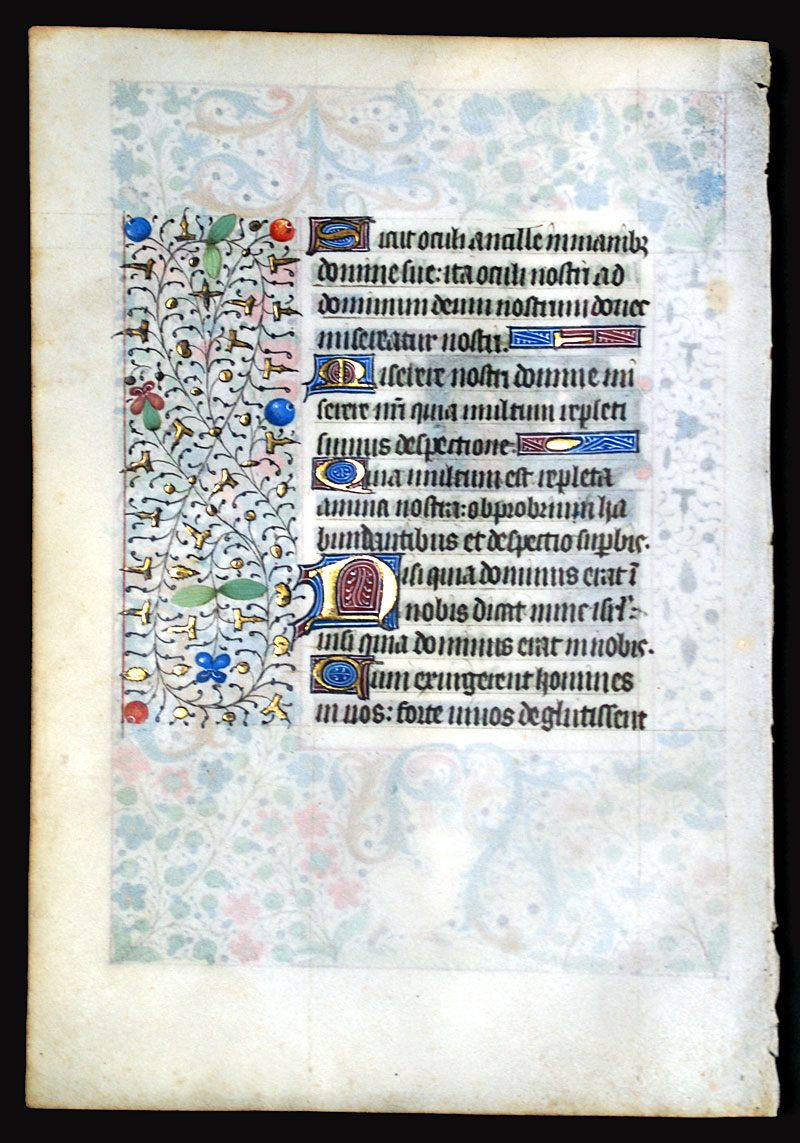 Sicut oculi ancille in manibꝫ
domine sue: ita oculi nostri ad
dominum deum nostrum donec
misereatur nostri.
Miserere nostri domine mi
serere nr̄i quia multum repleti
sumus despectione.
Quia multum est repleta
anima nostra: obprobrium ha
bundantibus et despectio suꝑbis.
Nisi quia dominus erat ī
nobis dicat nunc isrl̄:
nisi quia dominus erat in nobis.
Cum exurgerent homines
in nos: forte uiuos deglutissent